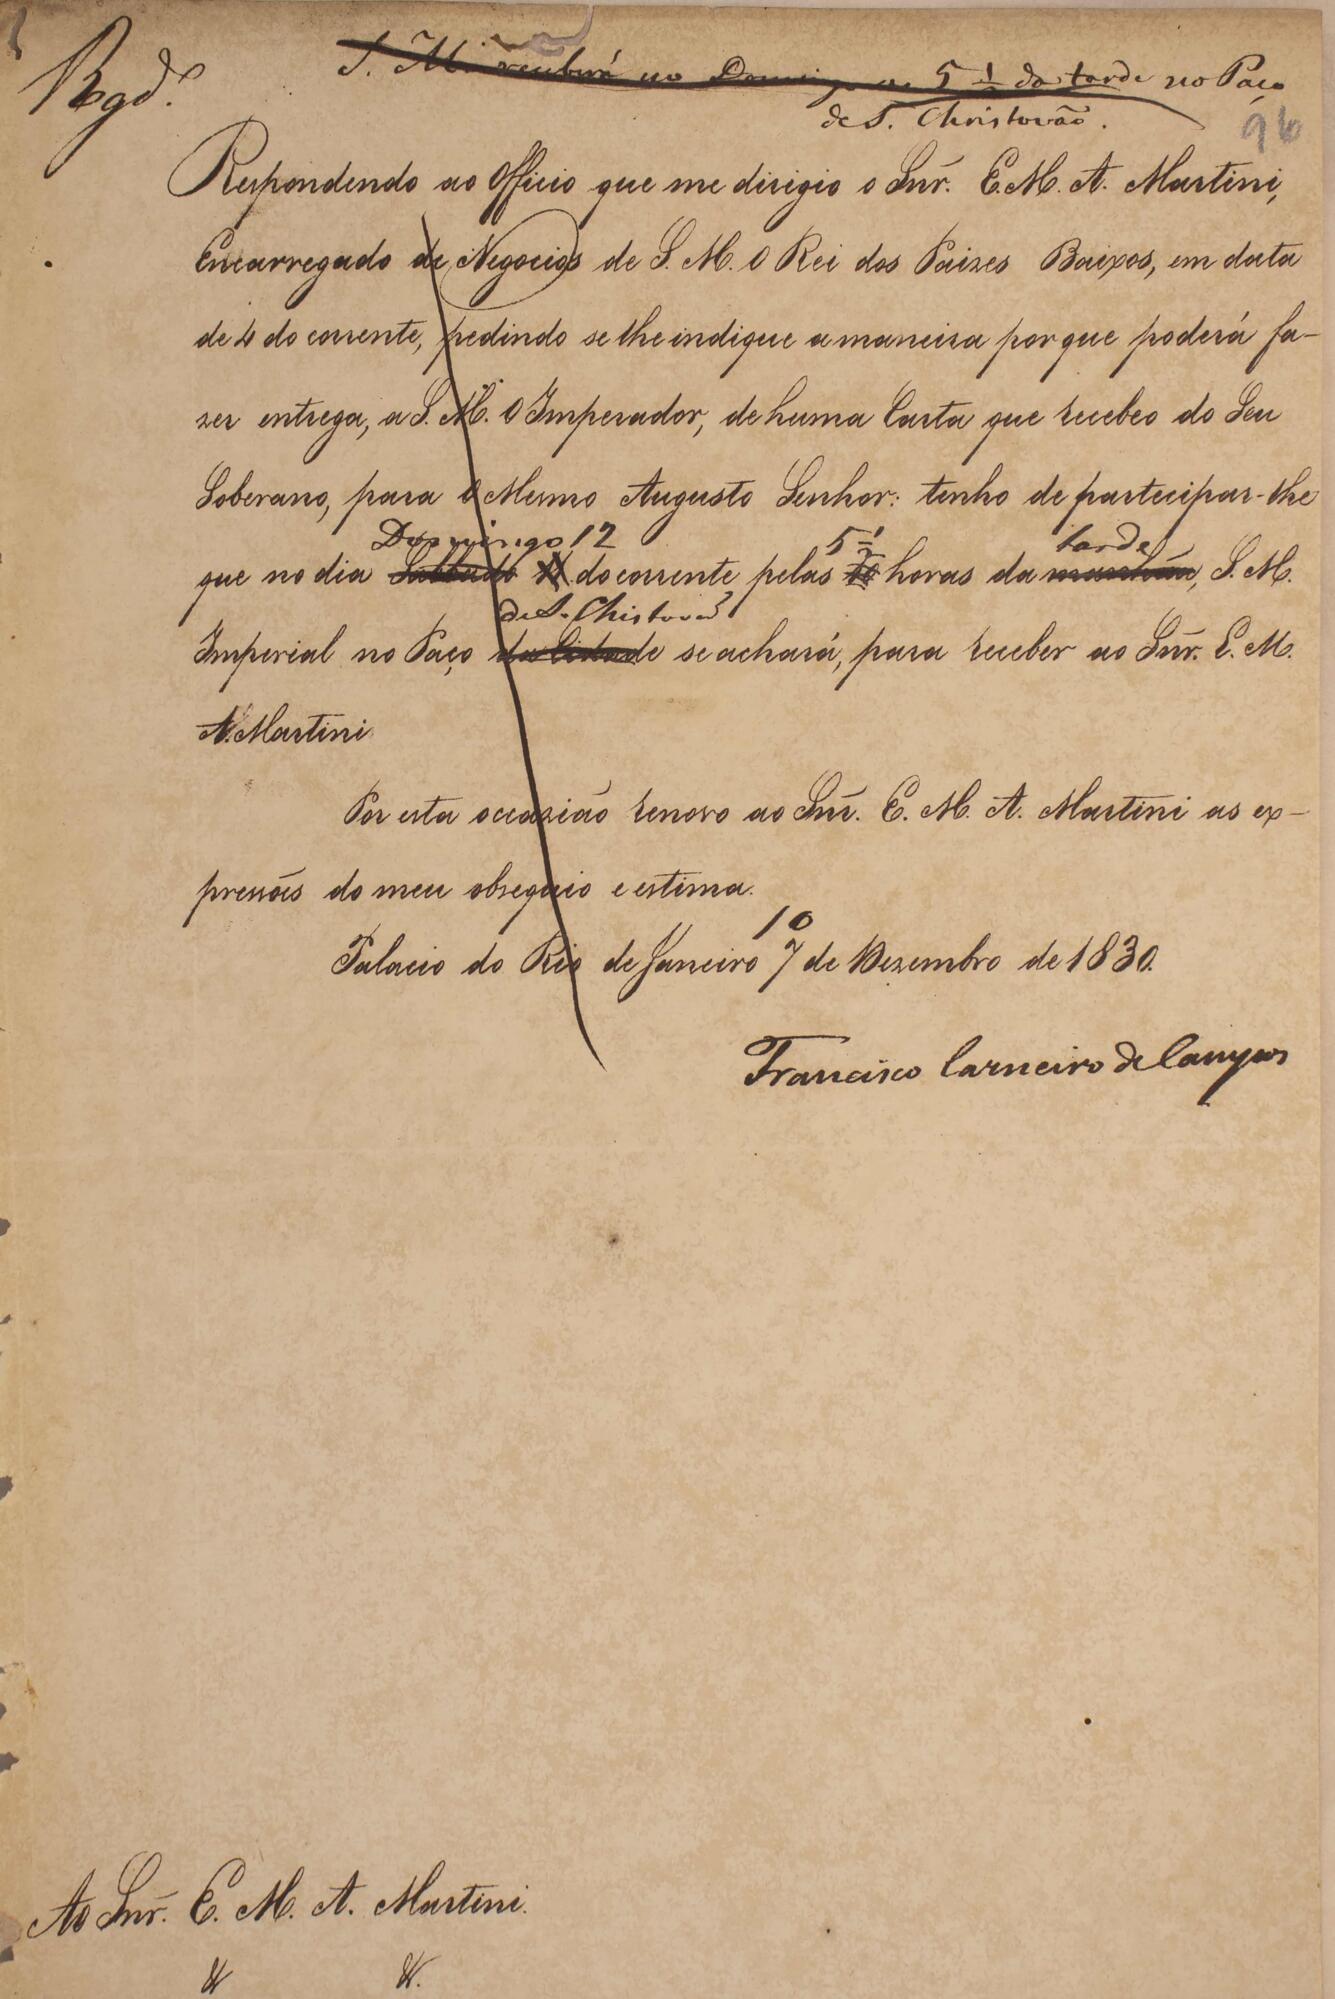 Rgd.º
S. M. receberá no Domingo as 5 ½ da tarde no Paço
de S. Christovão.
96
Respondendo ao Officio que me dirigio o Snr. E. M. A. Martini,
Encarregado de Negocios de S. M. O Rei dos Paizes Baixos, em data
de 4 do corrente, pedindo se lhe indique a maneira porque poderá fa-
zer entrega, a S. M. O Imperador, de huma Carta que recebeo do Seu
Soberano, para O Mesmo Augusto Senhor: tenho de partecipar-lhe
Domingo 12 5 ½ tarde
que no dia Sabbado 11 do corrente pelas 10 horas da manhãa, S. M.
de S. Christovão
Imperial no Paço da Cidade se achará, para receber ao Snr. E. M.
A. Martini
Por esta occazião renovo ao Snr. E. M. A. Martini as ex-
pressões do meu obsequio e estima.
10
Palacio do Rio de Janeiro 7 de Dezembro de 1830.
Francisco Carneiro de Campos
Ao Snr. E. M. A. Martini.
&. &.